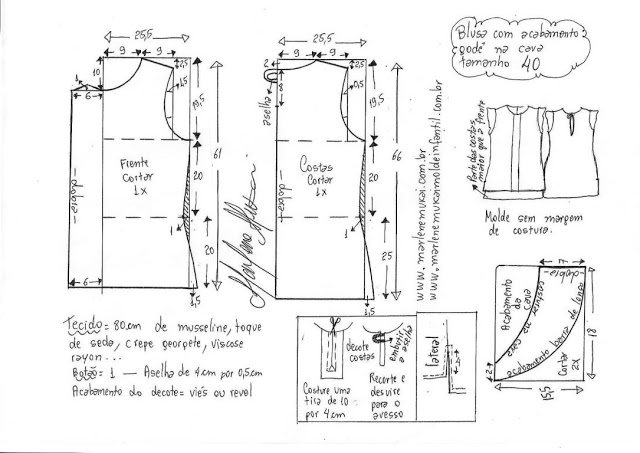 Blusa com acabamento
godê na cava
tamanho 40
25,5
9
9
10
1
6
2,5
1,5
19,5
61
Frente
Cortar
1x
dobra
20
1
20
6
1,5
25,5
9
9
2
8
aselha
2,5
0,5
19,5
66
Costas
Cortar
1x
dobra
20
1
25
1,5
www.marlenemukai.com.br
www.marlenemukaimoldeinfantil.com.br
Parte das costas
maior que a frente
Molde sem margem
de costura.
17
dobra
Acabamento
da
cava
acabamento barra de lenço
Cortar
2x
18
2
15,5
Tecido = 80cm de musseline, toque
de seda, crepe georgete, viscose
rayon...
Botão = 1 — Aselha de 4cm por 0,5cm
Acabamento do decote = viés ou revel
decote
costas
embutir
a aselha
Costure uma
tira de 10
por 4cm
Recorte e
desvire
para o
avesso
lateral